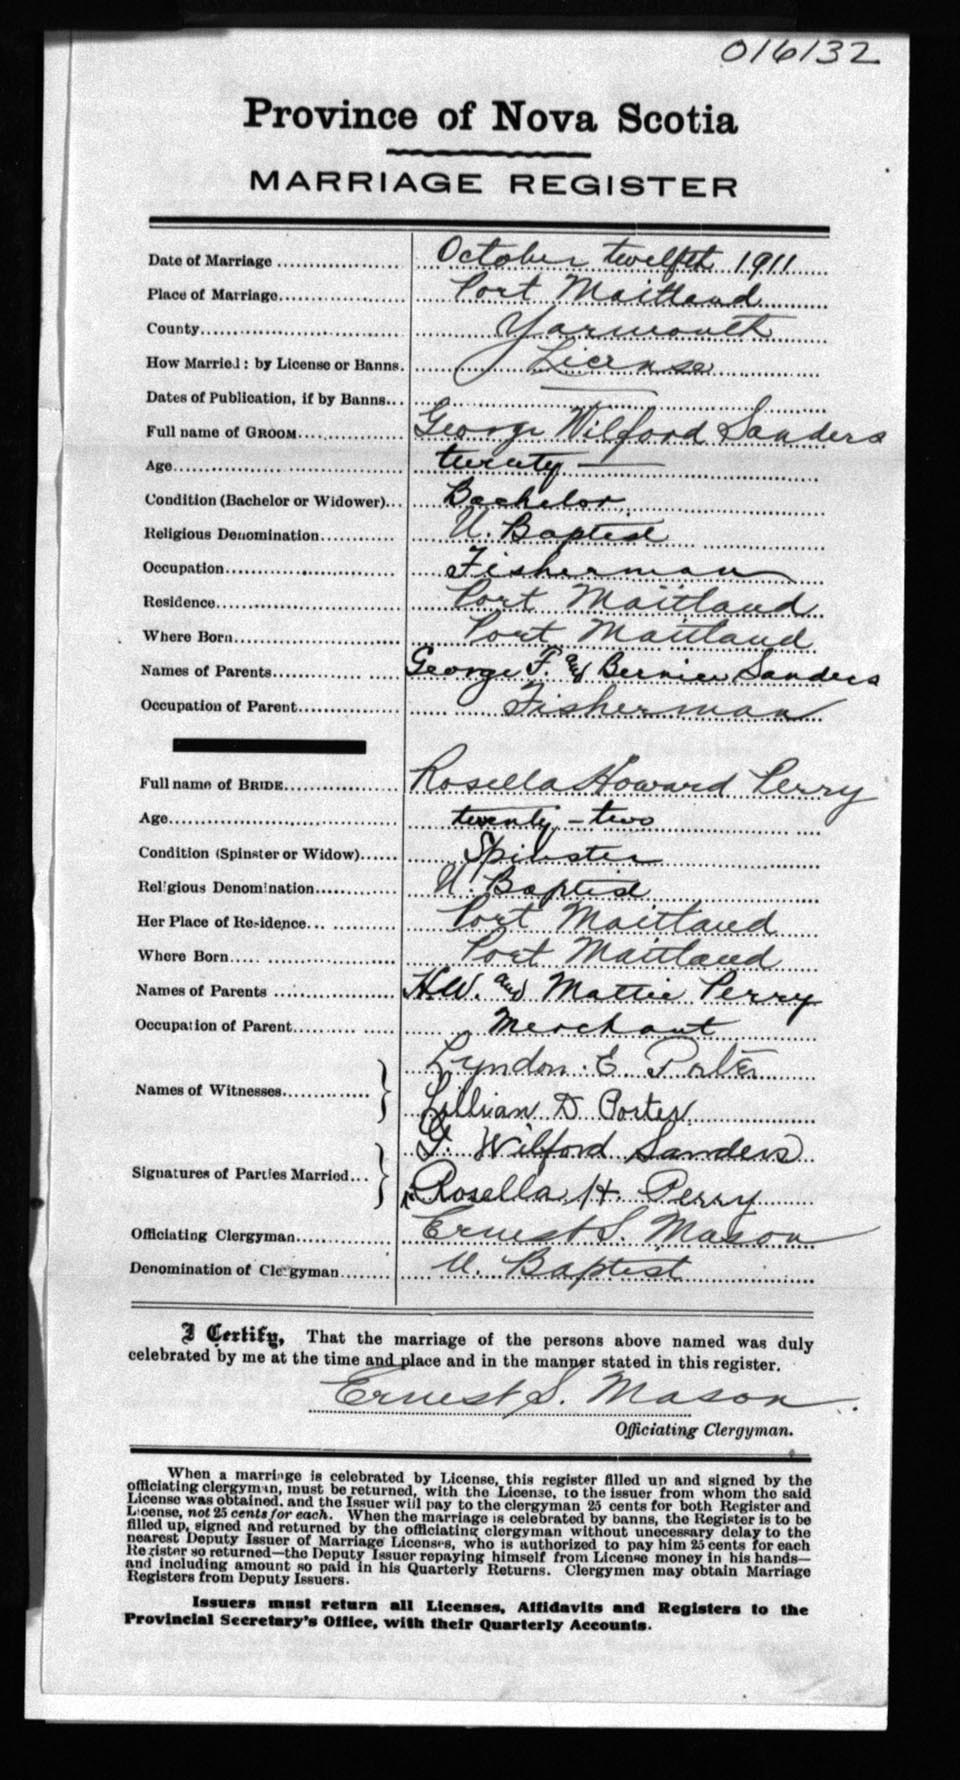 016132
Province of Nova Scotia
MARRIAGE REGISTER
Date of Marriage October twelfth 1911
Place of Marriage Port Maitland
County Yarmouth
How Married: by License or Banns. License
Dates of Publication, if by Banns
Full name of GROOM George Wilford Sanders
Age twenty —
Condition (Bachelor or Widower) Bachelor
Religious Denomination U. Baptist
Occupation Fisherman
Residence Port Maitland
Where Born Port Maitland
Names of Parents George F. and Bernice Sanders
Occupation of Parent Fisherman
Full name of BRIDE Rosella Howard Perry
Age twenty-two
Condition (Spinster or Widow) Spinster
Religious Denomination U. Baptist
Her Place of Residence Port Maitland
Where Born Port Maitland
Names of Parents H.W. and Mattie Perry
Occupation of Parent Merchant
Names of Witnesses Lyndon E. Porter
Lillian D Porter
Signatures of Parties Married G. Wilford Sanders
Rosella H. Perry
Officiating Clergyman Ernest S. Mason
Denomination of Clergyman U. Baptist
I Certify, That the marriage of the persons above named was duly
celebrated by me at the time and place and in the manner stated in this register.
Ernest S. Mason
Officiating Clergyman.
When a marriage is celebrated by License, this register filled up and signed by the
officiating clergyman, must be returned, with the License, to the issuer from whom the said
License was obtained, and the Issuer will pay to the clergyman 25 cents for both Register and
License, not 25 cents for each. When the marriage is celebrated by banns, the Register is to be
filled up, signed and returned by the officiating clergyman without unecessary delay to the
nearest Deputy Issuer of Marriage Licenses, who is authorized to pay him 25 cents for each
Register so returned—the Deputy Issuer repaying himself from License money in his hands—
and including amount so paid in his Quarterly Returns. Clergymen may obtain Marriage
Registers from Deputy Issuers.
Issuers must return all Licenses, Affidavits and Registers to the
Provincial Secretary's Office, with their Quarterly Accounts.